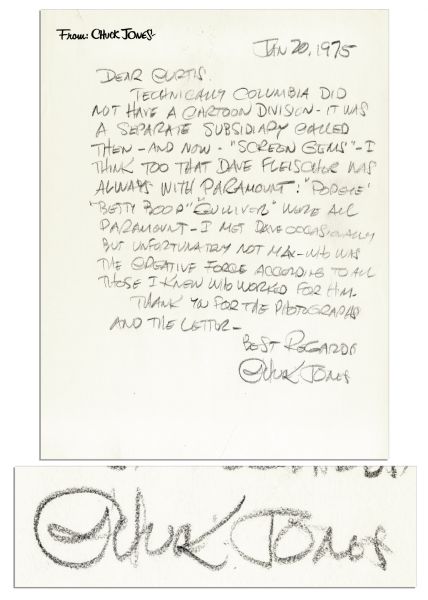 From: CHUCK JONES
JAN 20, 1975
DEAR CURTIS.
TECHNICALLY COLUMBIA DID
NOT HAVE A CARTOON DIVISION - IT WAS
A SEPARATE SUBSIDIARY CALLED
THEN - AND NOW - "SCREEN GEMS" - I
THINK TOO THAT DAVE FLEISCHER WAS
ALWAYS WITH PARAMOUNT: "POPEYE"
"BETTY BOOP" "GULLIVER" WERE ALL
PARAMOUNT - I MET DAVE OCCASIONALLY
BUT UNFORTUNATELY NOT MAX - WHO WAS
THE CREATIVE FORCE ACCORDING TO ALL
THOSE I KNEW WHO WORKED FOR HIM.
THANK YOU FOR THE PHOTOGRAPHS
AND THE LETTER -
BEST REGARDS
CHUCK JONES
CHUCK JONES